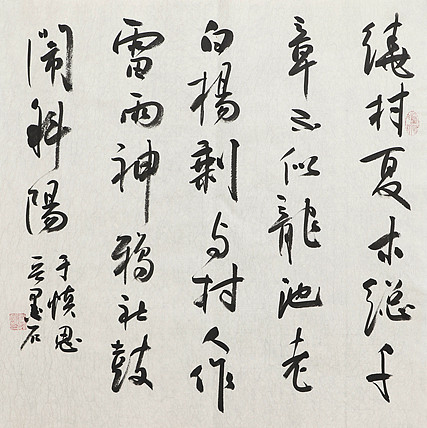 繞村夏木總千
章不似龍池老
白楊剩与村人作
雷雨神鴉社鼓
鬧斜陽
于慎思
墨石